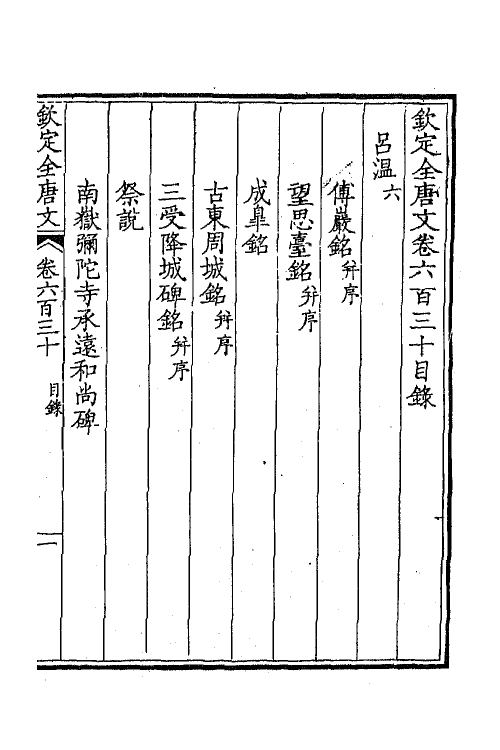 欽定全唐文卷六百三十目錄
呂溫 六
傅巖銘 并序
望思臺銘 并序
成臯銘
古東周城銘 并序
三受降城碑銘 并序
祭說
南嶽彌陀寺承遠和尚碑
欽定全唐文 卷六百三十 目錄 一